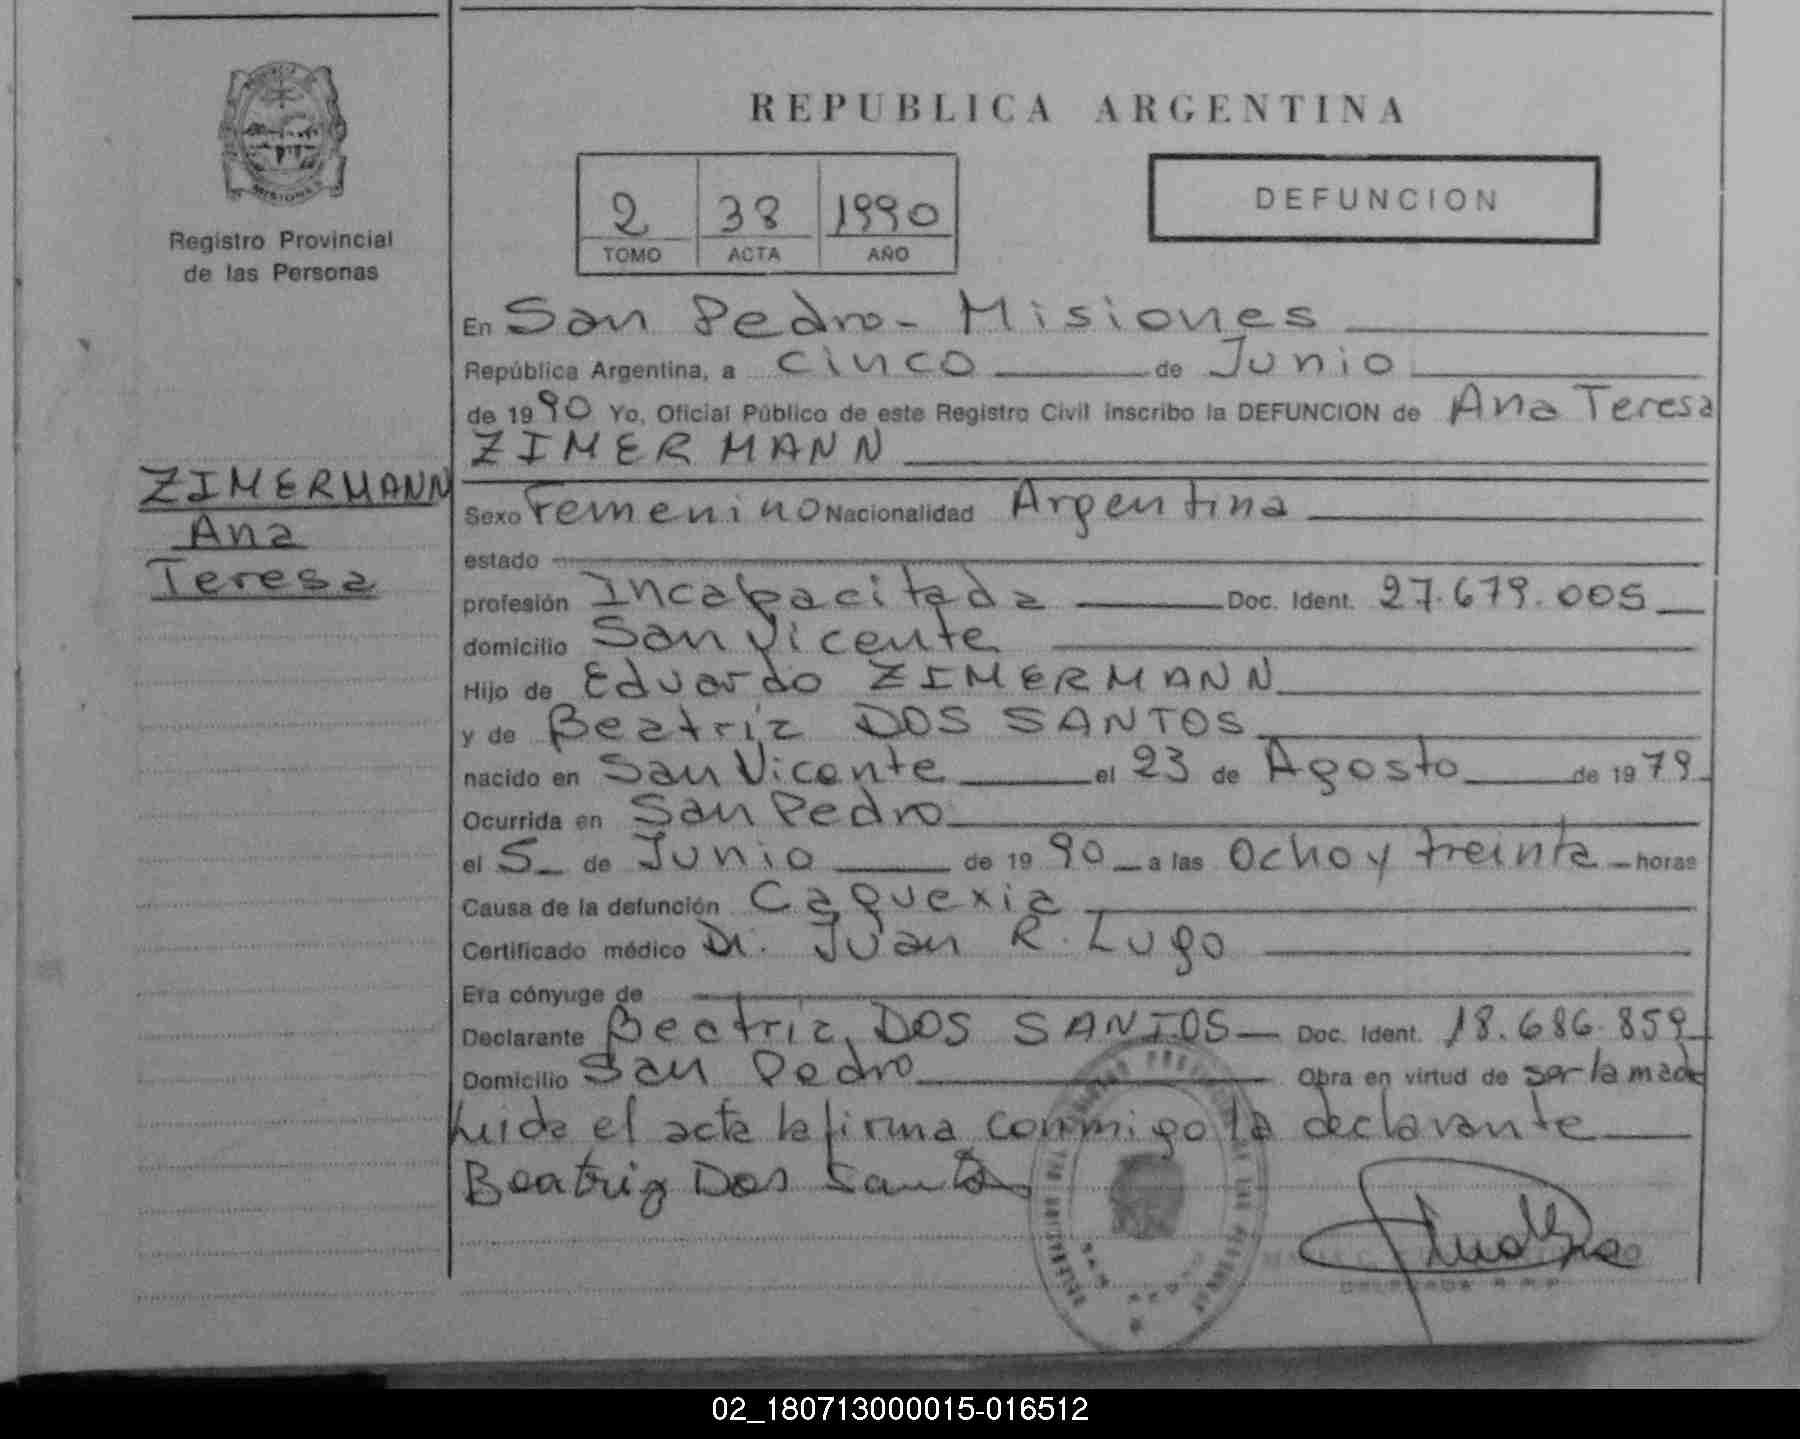 REPUBLICA ARGENTINA
Registro Provincial
de las Personas
2 38 1990
TOMO ACTA AÑO
DEFUNCION
En San Pedro - Misiones
República Argentina, a cinco de Junio
de 1990 Yo, Oficial Público de este Registro Civil inscribo la DEFUNCION de Ana Teresa
ZIMERMANN
ZIMERMANN
Ana
Teresa
Sexo Femenino Nacionalidad Argentina
estado
profesión Incapacitada Doc. Ident. 27.679.005
domicilio San Vicente
Hijo de Eduardo ZIMERMANN
y de Beatriz DOS SANTOS
nacido en San Vicente el 23 de Agosto de 1979
Ocurrida en San Pedro
el 5 de Junio de 1990 a las Ocho y treinta horas
Causa de la defunción Caquexia
Certificado médico Dr. Juan R. Lugo
Era cónyuge de
Declarante Beatriz DOS SANTOS Doc. Ident. 18.686.859
Domicilio San Pedro Obra en virtud de ser la madre
Leida el acta la firma conmigo la declarante
Beatriz Dos Santos
DELEGADA R.P.P.
02_180713000015-016512